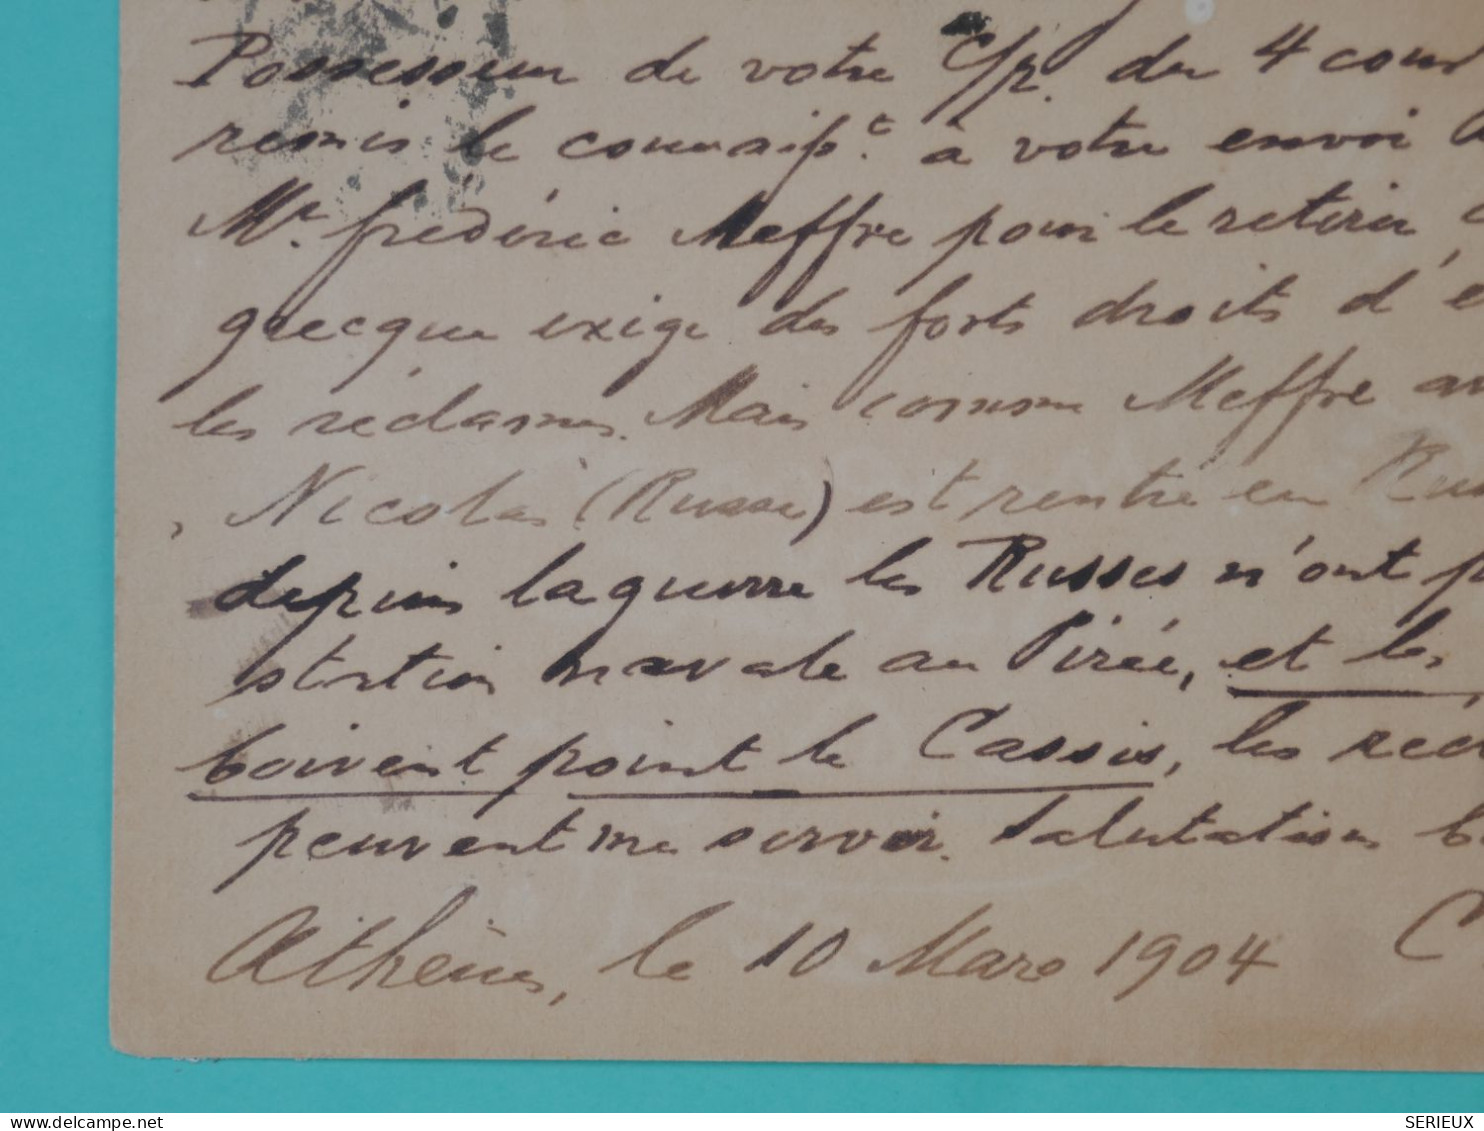 Possesseur de votre C/p. du 4 cour
remis le connaiss.t à votre envoi
Mr. frédéric Meffre pour le retirer
grecque exige des forts droits d'e
les réclames. Mais comme Meffre av
Nicolas (Russe) est rentré en Rus
depuis la guerre les Russes n'ont p
station navale au Pirée, et les
boivent point le Cassis, les réc
peuvent me servir. Salutations b
Athènes, le 10 Mars 1904 C
Delcampe.net
SERIEUX